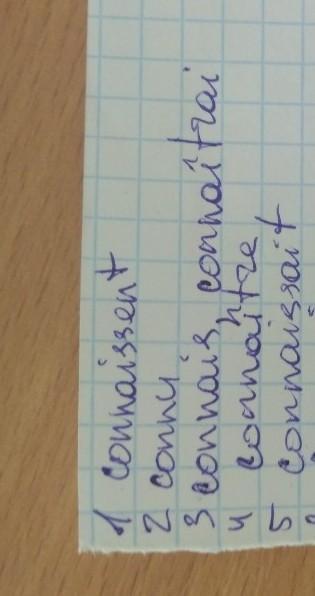 1 connaissent
2 connu
3 connais, connaîtrai
4 connaître
5 connaissait